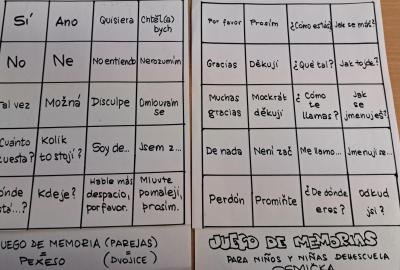 Sí Ano Quisiera Chtěl(a) bych
No Ne No entiendo Nerozumím
Tal vez Možná Disculpe Omlouvám se
Cuánto cuesta? Kolik to stojí? Soy de... Jsem z...
ónde stá...? Kde je? Hable más despacio, por favor. Mluvte pomaleji, prosím.
JUEGO DE MEMORIA (PAREJAS)
=
PEXESO (DVOJICE)
Por favor Prosím ¿Cómo estás? Jak se máš?
Gracias Děkuji ¿Qué tal? Jak to jde?
Muchas gracias Mockrát děkuji ¿Cómo te llamas? Jak se jmenuješ?
De nada Není zač Me llamo... Jmenuji se...
Perdón Promiňte ¿De dónde eres? Odkud jsi?
JUEGO DE MEMORIAS
PARA NIÑOS Y NIÑAS DE